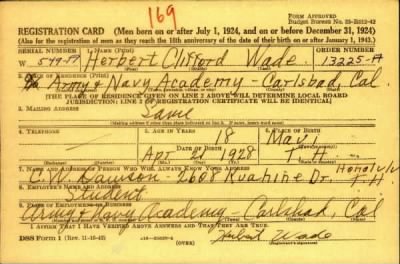 169
FORM APPROVED
Budget Bureau No. 33-R012-42
REGISTRATION CARD (Men born on or after July 1, 1924, and on or before December 31, 1924)
(Also for the registration of men as they reach the 18th anniversary of the date of their birth on or after January 1, 1943.)
SERIAL NUMBER 1. NAME (Print) ORDER NUMBER
W 544-57 Herbert Clifford Wade 13225-A
(First) (Middle) (Last)
2. PLACE OF RESIDENCE (Print)
Army Navy Academy - Carlsbad, Cal.
[THE PLACE OF RESIDENCE GIVEN ON LINE 2 ABOVE WILL DETERMINE LOCAL BOARD
JURISDICTION; LINE 2 OF REGISTRATION CERTIFICATE WILL BE IDENTICAL]
3. MAILING ADDRESS
Same
4. TELEPHONE 5. AGE IN YEARS 6. PLACE OF BIRTH
18 Maui
DATE OF BIRTH
Apr 21 1928 T.H.
7. NAME AND ADDRESS OF PERSON WHO WILL ALWAYS KNOW YOUR ADDRESS
C. W. 2608 Dr. Honolulu T.H.
8. EMPLOYER'S NAME AND ADDRESS
Student
9. PLACE OF EMPLOYMENT OR BUSINESS
Army & Navy Academy Carlsbad, Cal
I AFFIRM THAT I HAVE VERIFIED ABOVE ANSWERS AND THAT THEY ARE TRUE.
DSS Form 1 (OVER) Herbert Wade